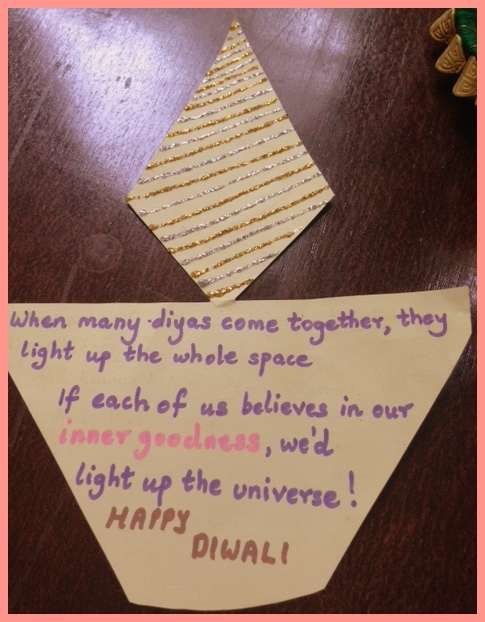 When many diyas come together, they
light up the whole space
If each of us believes in our
inner goodness, we'd
light up the universe!
HAPPY
DIWALI